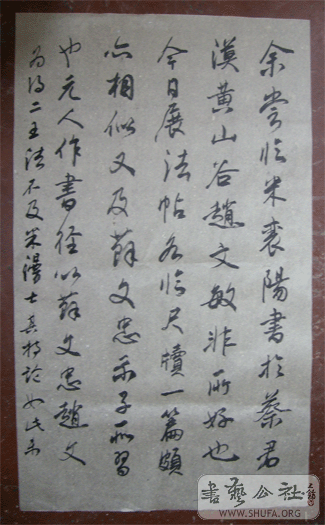 余嘗临米襄陽書於蔡君
漠黄山谷趙文敏非所好也
今日展法帖各临尺牘一篇頗
亦相似又及蘇文忠亦予所習
也元人作書徑以蘇文忠趙文
为得二王法不及米漫士真特论如此
書藝公社
WWW.SHUFA.ORG